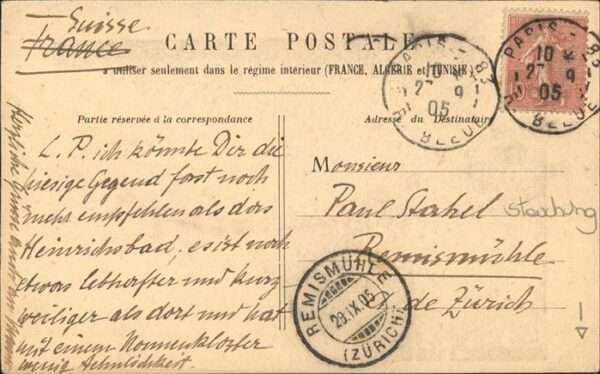 Suisse
France
CARTE POSTALE
à utiliser seulement dans le régime intérieur (FRANCE, ALGÉRIE et TUNISIE)
Partie réservée à la correspondance
Adresse du Destinataire
L. P. ich könnte Dir die
hiesige Gegend fast noch
mehr empfehlen als das
Heinrichsbad, es ist noch
etwas lebhafter und kurz-
weiliger als dort und hat
mit einem Nonnenkloster
wenig Aehnlichkeit.
Herzliche Grüsse
Monsieur
Paul Stahel
Remismühle
Ct de Zürich
PARIS - 83
10
27 9
05
R. BLEUE
PARIS - 83
10
27 9
05
R. BLEUE
REMISMÜHLE
29.IX.05
(ZÜRICH)